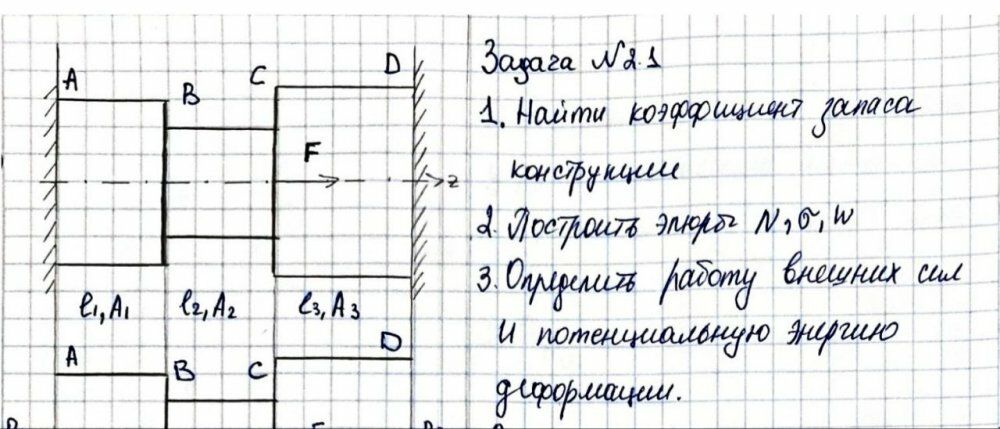 A
B
C
D
F
z
l₁, A₁
l₂, A₂
l₃, A₃
A
B
C
D
Задача №2.1
1. Найти коэффициент запаса
конструкции
2. Построить эпюры N, σ, w
3. Определить работу внешних сил
И потенциальную энергию
деформации.